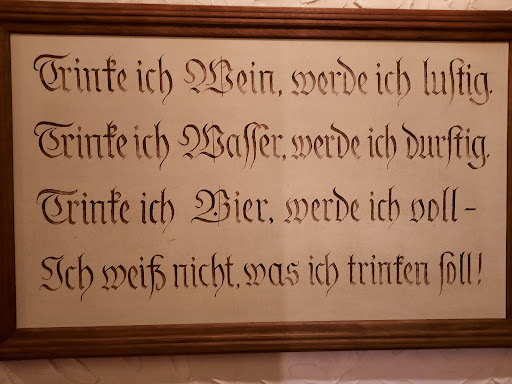 Trinke ich Wein, werde ich lustig.
Trinke ich Wasser, werde ich durstig.
Trinke ich Bier, werde ich voll –
Ich weiß nicht, was ich trinken soll!